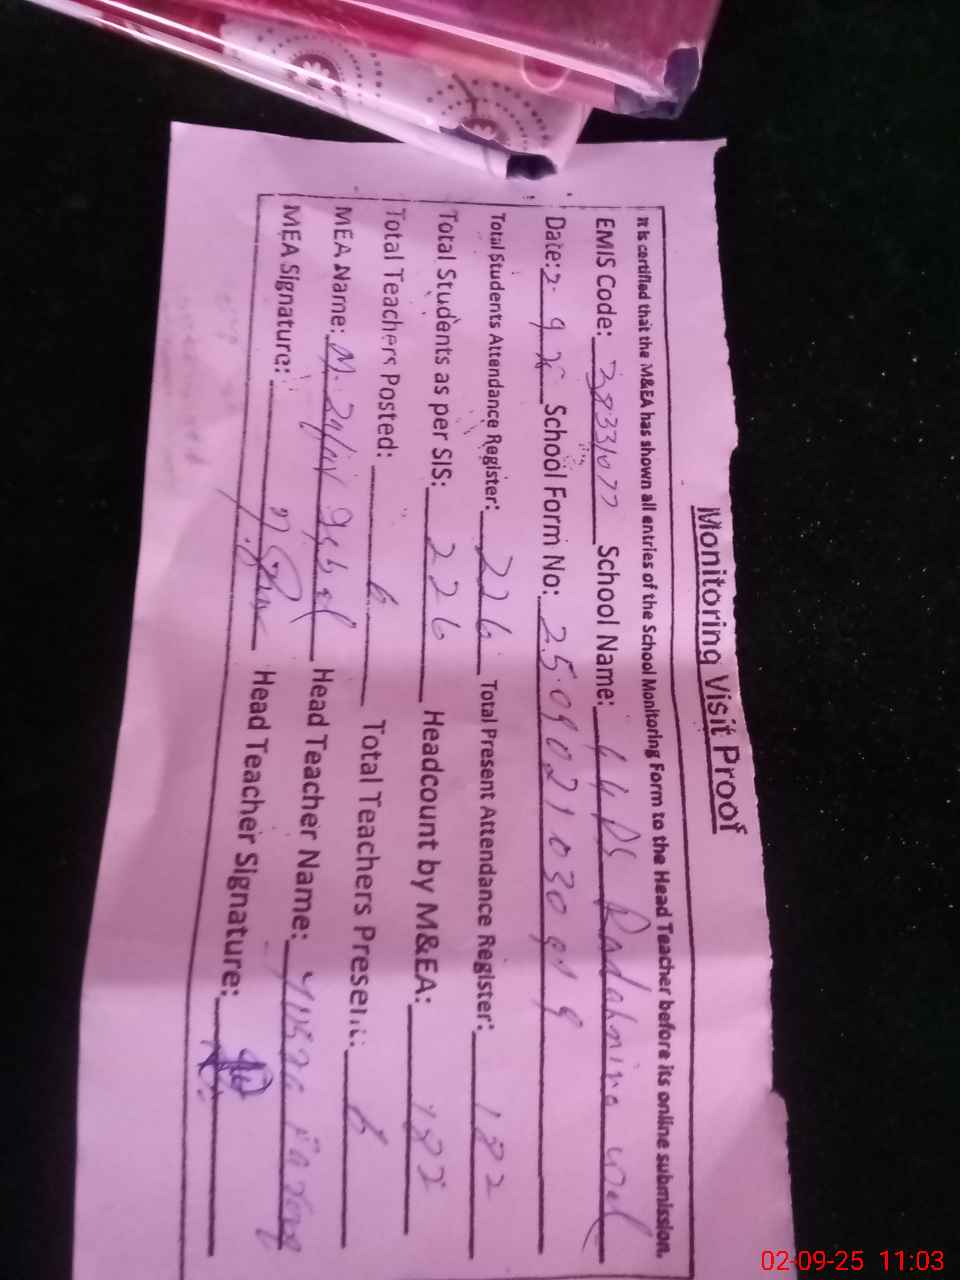 Monitoring Visit Proof
It is certified that the M&EA has shown all entries of the School Monitoring Form to the Head Teacher before its online submission.
EMIS Code: 38331077 School Name:
Date: 2-9 School Form No: 2509021030919
Total Students Attendance Register: 226 Total Present Attendance Register: 182
Total Students as per SIS: 226 Headcount by M&EA: 182
Total Teachers Posted: 6 Total Teachers Present: 6
MEA Name: M. Head Teacher Name:
MEA Signature: Head Teacher Signature:
02-09-25 11:03